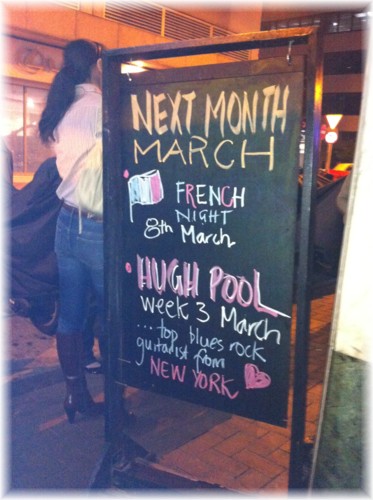 NEXT MONTH
MARCH
FRENCH
NIGHT
8th March
HUGH POOL
week 3 March
...top blues rock
guitarist from
NEW YORK